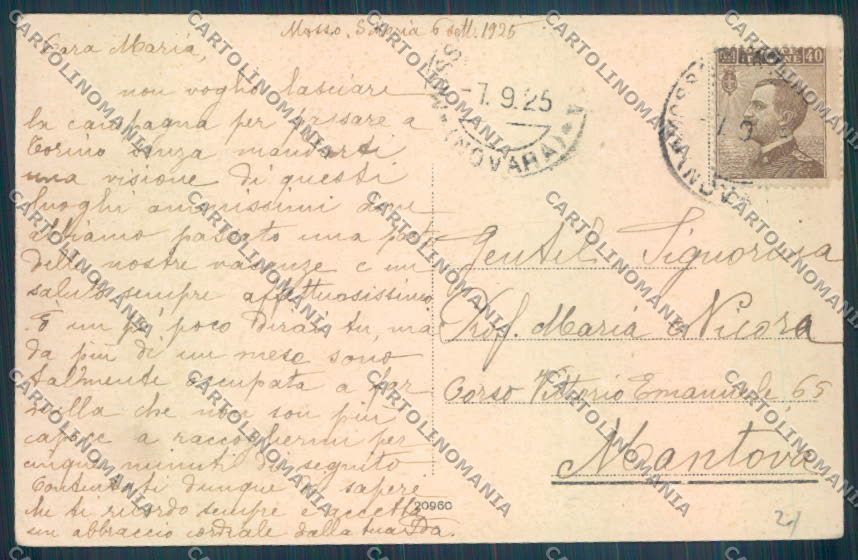 Mosso S. Maria 6 sett. 1925
Cara Maria,
non voglio lasciare
la campagna per passare a
Torino senza mandarti
una visione di questi
luoghi amenissimi dove
abbiamo passato una parte
delle nostre vacanze e un
saluto sempre affettuosissimo
È un po' poco dirai tu, ma
da più di un mese sono
talmente occupata a far
nulla che non son più
capace a raccogliermi per
cinque minuti di seguito
Contentati dunque di sapere
che ti ricordo sempre e accetta
un abbraccio cordiale dalla tua Ida.
-7.9.25
(NOVARA)
40
Gentil Signorina
Prof. Maria Nicora
Corso Vittorio Emanuele, 65
Mantova
20960
CARTOLINOMANIA